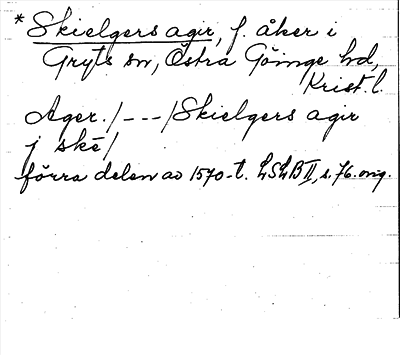 * Skielgers agir, f. åker i
Gryts sn, Östra Göinge hd,
Krist. l.
Ager./---/Skielgers agir
j skē/
förra delen av 1570-t. LSLB II, s. 76. orig.